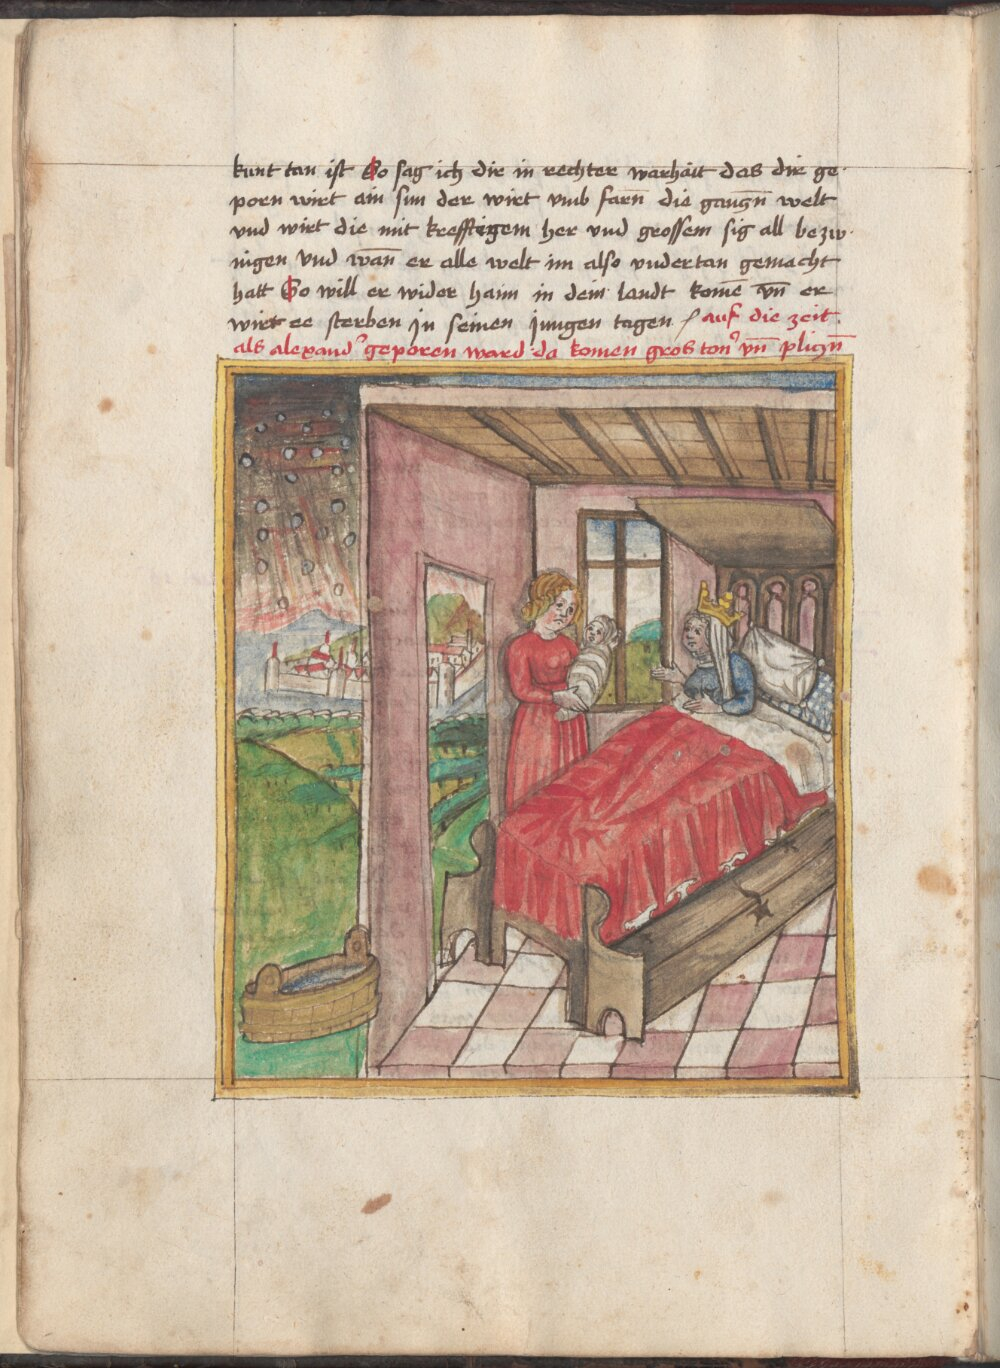 kunt tan ist So sag ich dir in rechter warhait das dir ge
poren wirt ain sun der wirt vmb farn̄ die ganczn̄ welt
vnd wirt die mit krefftigem her vnd grossem sig all bezw
ingen Vnd wan̄ er alle welt im also vndertan gemacht
hatt So will er wider haim in dein landt komē vn̄ er
wirt ee sterben in seinen jungen tagen / auf die zeit
als alexand' geporen ward da komen gros ton' vn̄ pliczn̄